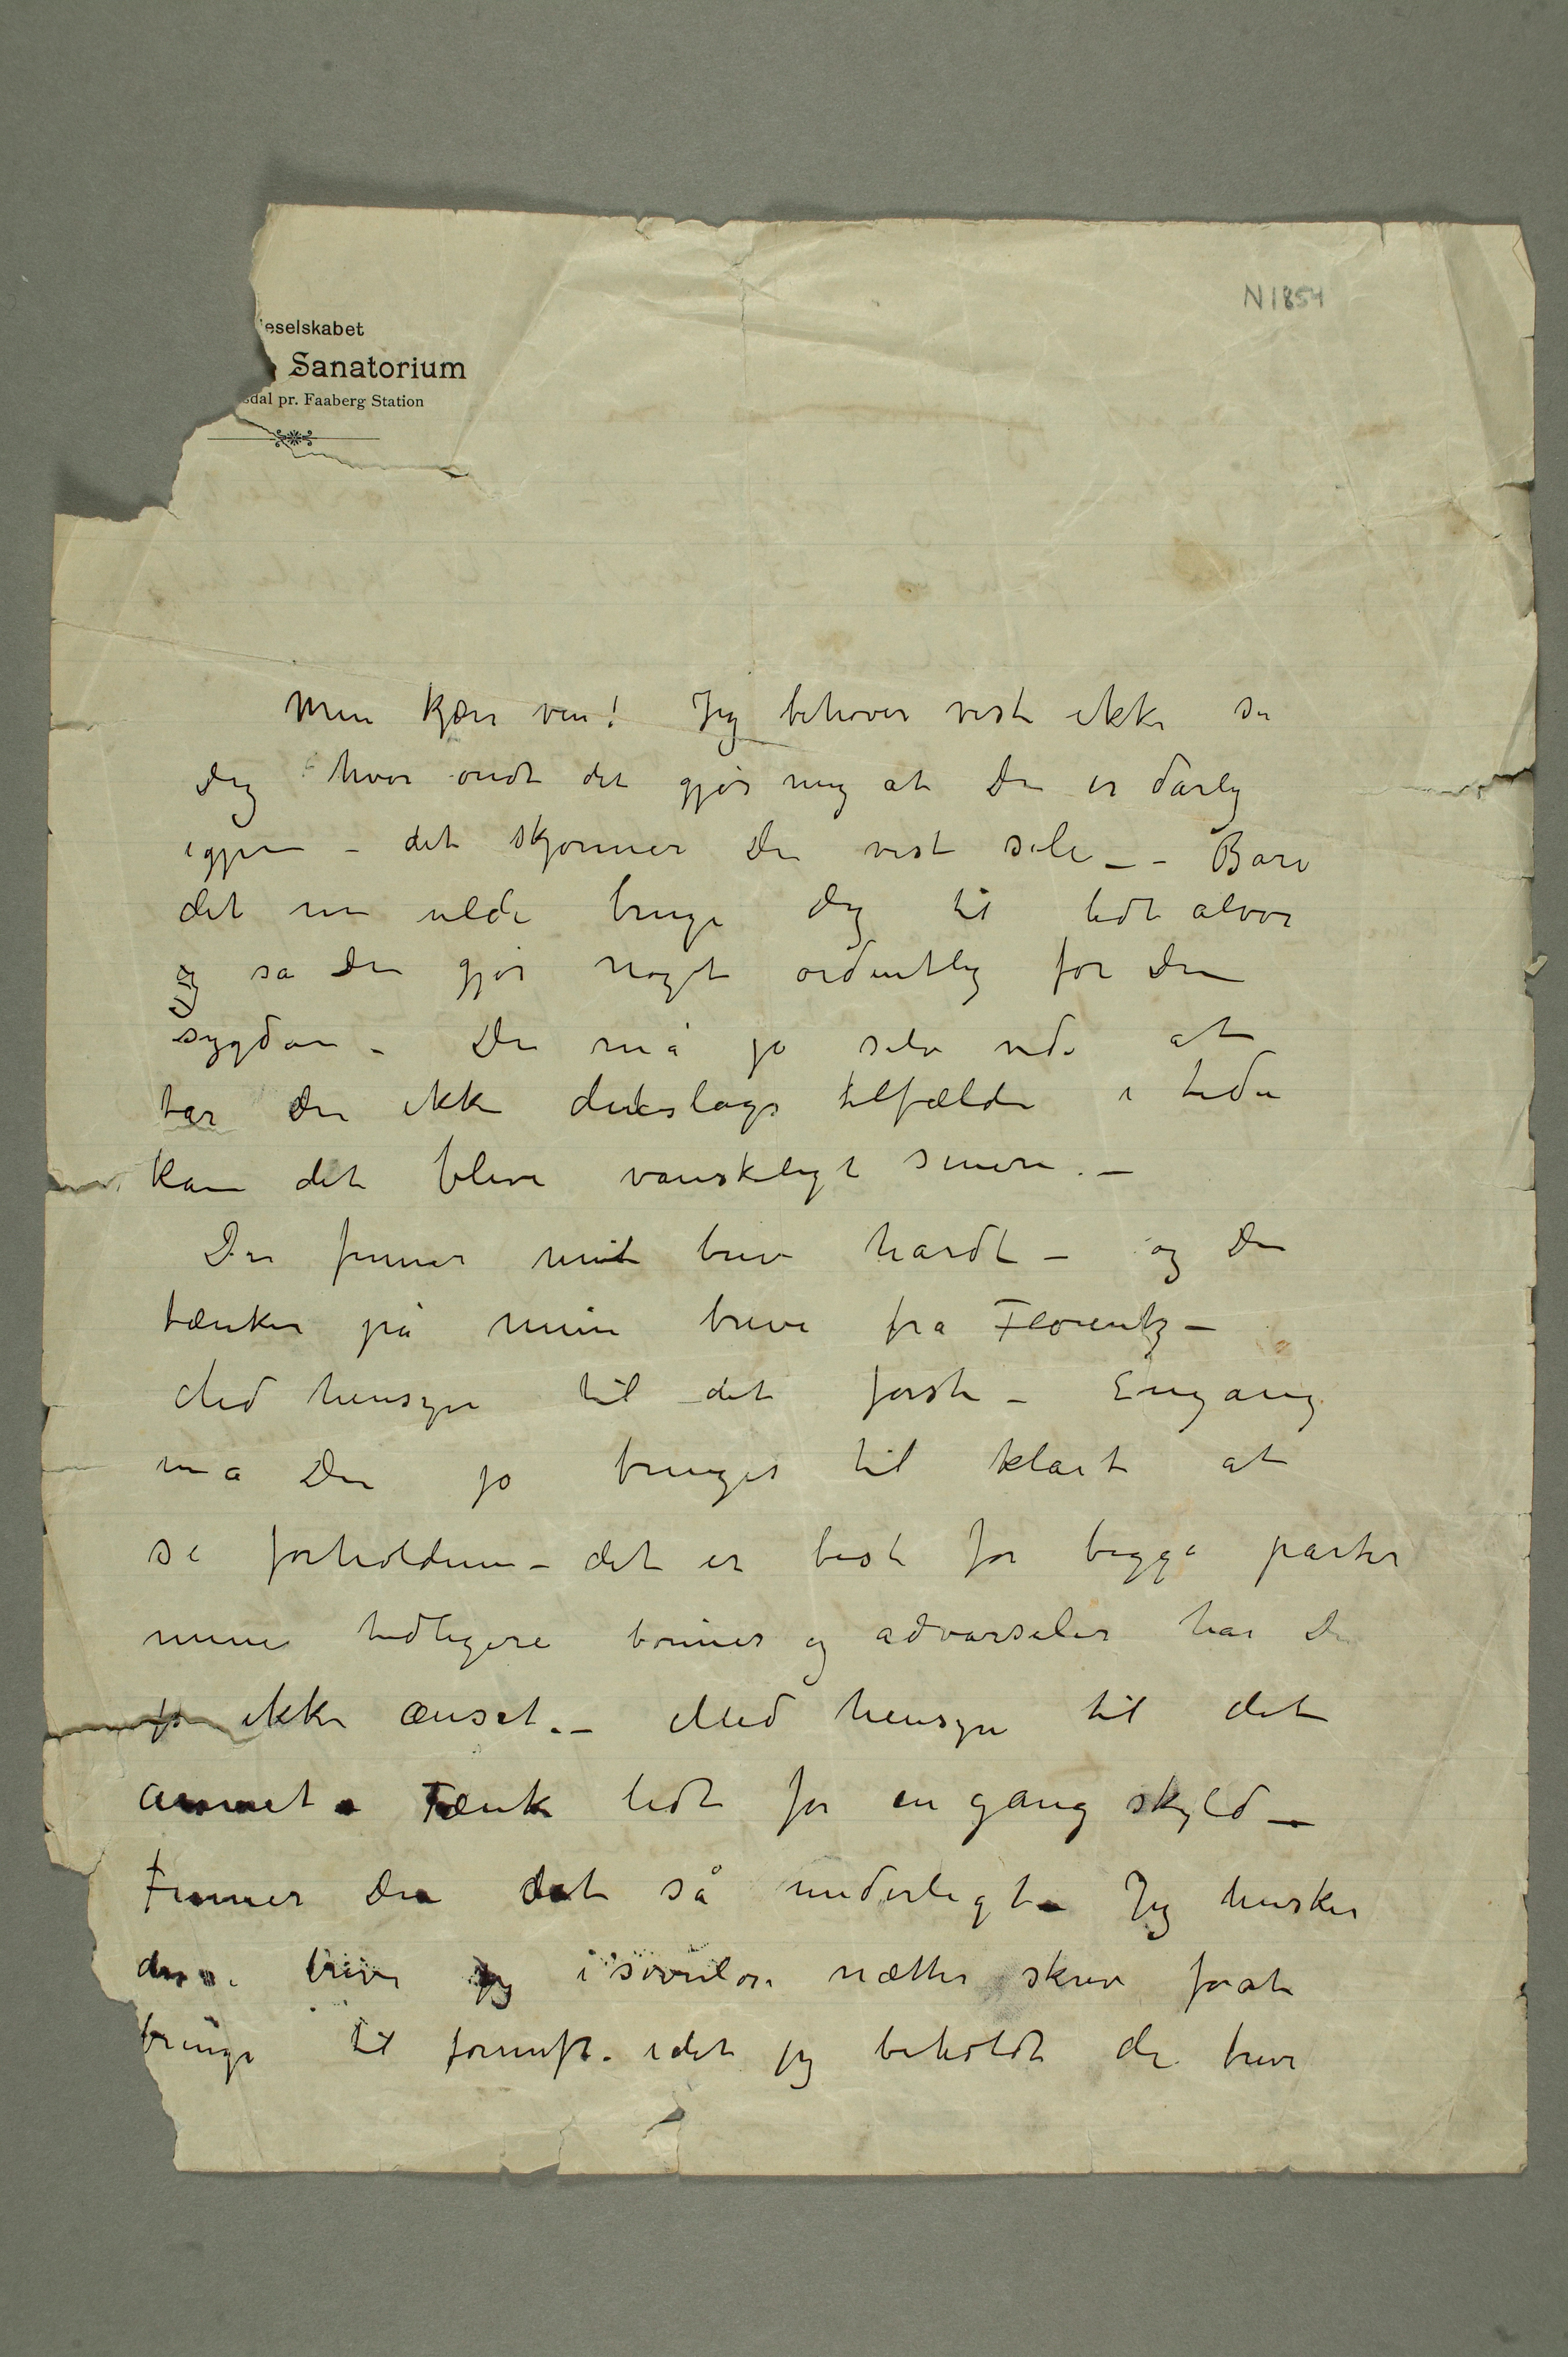 N1854
eselskabet
Sanatorium
sdal pr. Faaberg Station
Min kjære ven! Jeg behøver vist ikke si
dig hvor ondt det gjør mig at Du er dårlig
igjen – det skjønner Du vist selv – – Bare
det nu vilde bringe dig til lidt alvor
og så Du gjør noget ordentlig for Din
sygdom – Du må jo selv vide at
tar Du ikke deslags tilfælde i tide
kan det blive vanskeligt senere. –
Du finner mit brev hardt – og Du
tænker på mine breve fra Florentz –
Med hensyn til det første – Engang
må Du jo bringes til klart at
se forholdene – det er best for begge parter
mine tidligere bønner og advarseler har Du
jo ikke ænset. – Med hensyn til det
annet. Tænk lidt for en gang skyld –
Finner Du det så underligt – Jeg husker
disse breve jeg i søvnløse nætter skrev forat
bringe til fornuft. idet jeg beholdt de breve